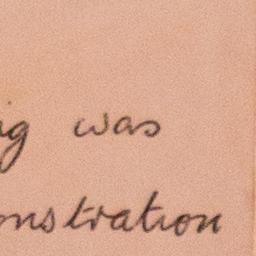 ng was
onstration